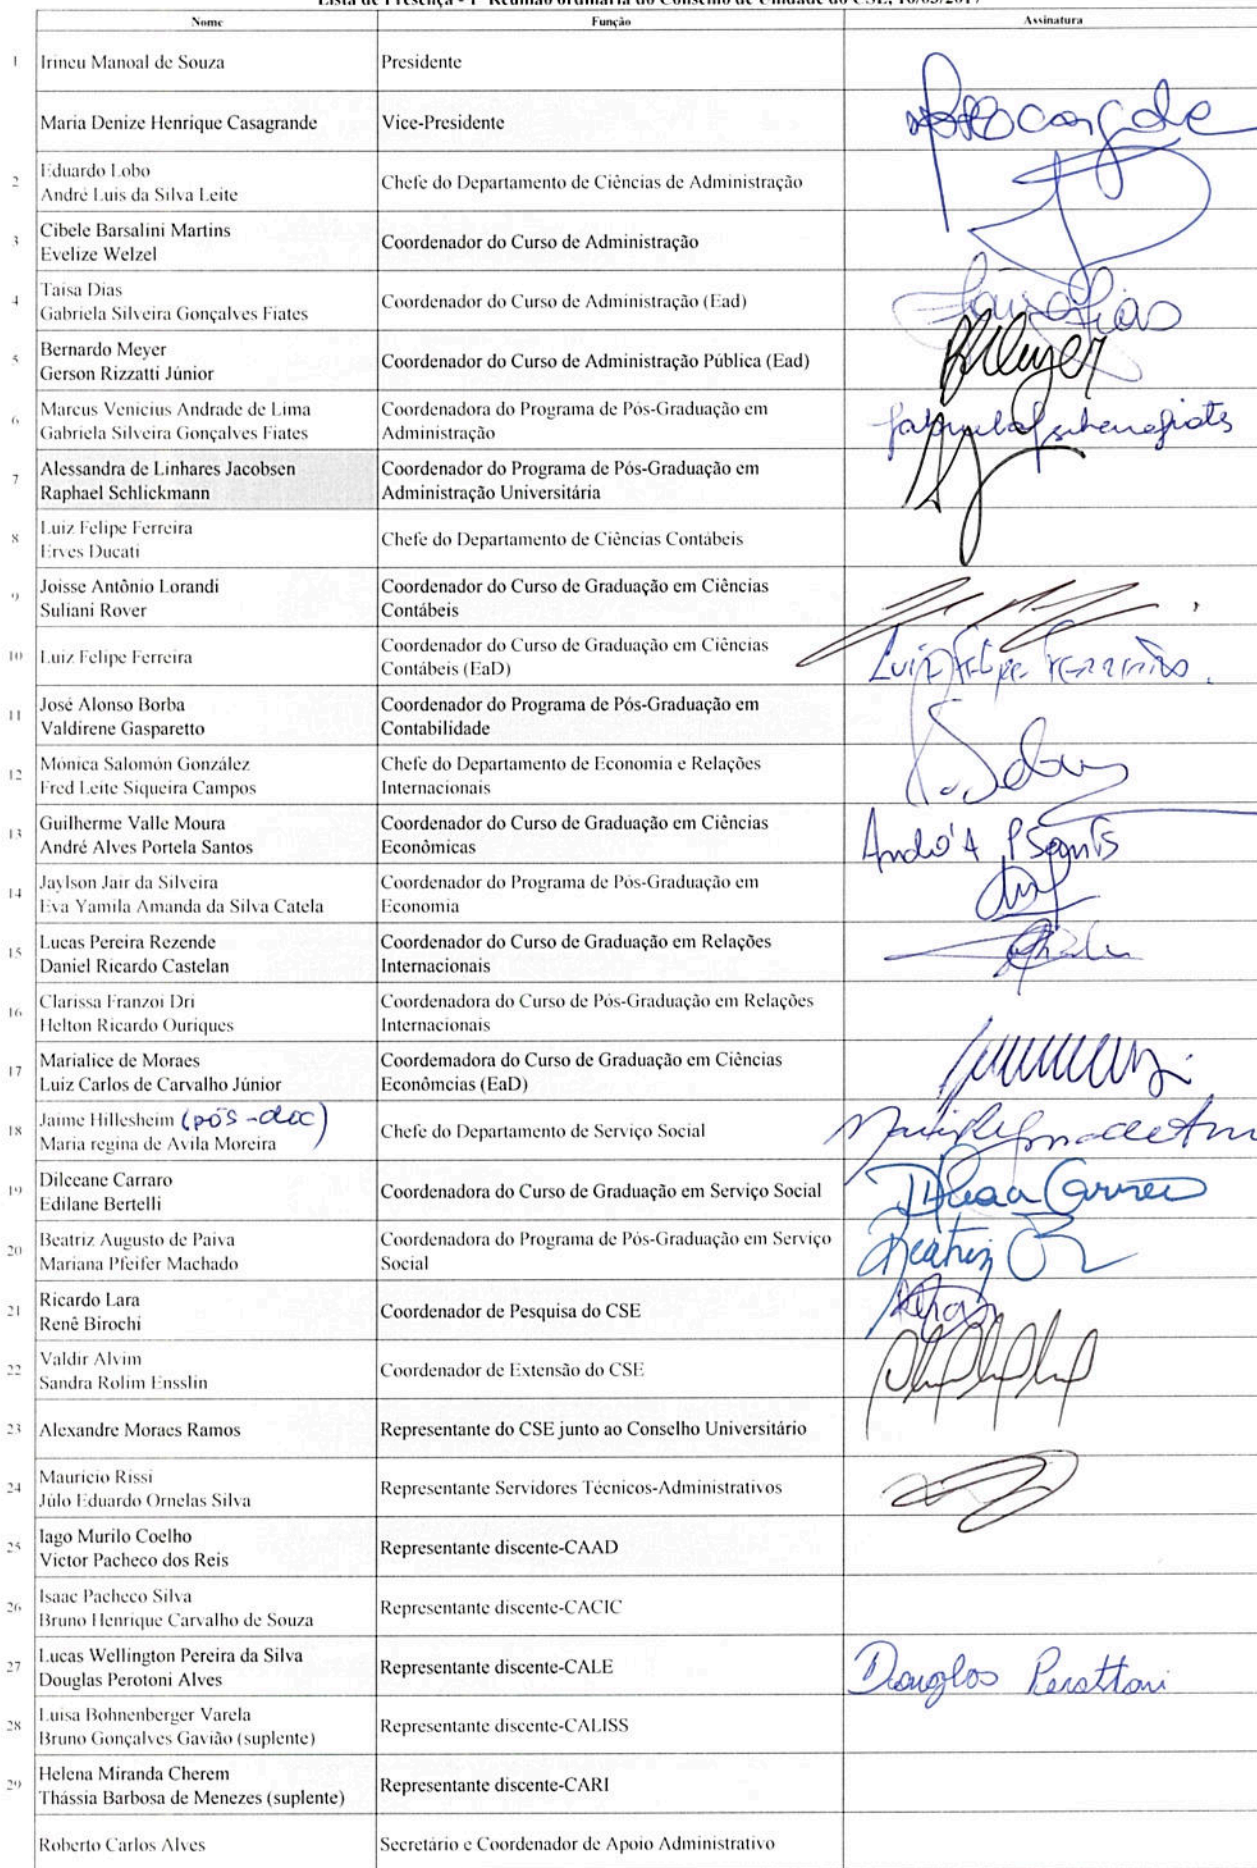 Lista de Presença - 1ª Reunião ordinária do Conselho de Unidade do CSE, 16/03/2017
Nome Função Assinatura
1 Irineu Manoal de Souza Presidente
Maria Denize Henrique Casagrande Vice-Presidente
2 Eduardo Lobo
André Luis da Silva Leite
Chefe do Departamento de Ciências de Administração
3 Cibele Barsalini Martins
Evelize Welzel
Coordenador do Curso de Administração
4 Taisa Dias
Gabriela Silveira Gonçalves Fiates
Coordenador do Curso de Administração (Ead)
Taisa Dias
5 Bernardo Meyer
Gerson Rizzatti Júnior
Coordenador do Curso de Administração Pública (Ead)
6 Marcus Venicius Andrade de Lima
Gabriela Silveira Gonçalves Fiates
Coordenadora do Programa de Pós-Graduação em
Administração
7 Alessandra de Linhares Jacobsen
Raphael Schlickmann
Coordenador do Programa de Pós-Graduação em
Administração Universitária
8 Luiz Felipe Ferreira
Erves Ducati
Chefe do Departamento de Ciências Contábeis
9 Joisse Antônio Lorandi
Suliani Rover
Coordenador do Curso de Graduação em Ciências
Contábeis
10 Luiz Felipe Ferreira
Coordenador do Curso de Graduação em Ciências
Contábeis (EaD)
Luiz Felipe Ferreira
11 José Alonso Borba
Valdirene Gasparetto
Coordenador do Programa de Pós-Graduação em
Contabilidade
12 Mónica Salomón González
Fred Leite Siqueira Campos
Chefe do Departamento de Economia e Relações
Internacionais
13 Guilherme Valle Moura
André Alves Portela Santos
Coordenador do Curso de Graduação em Ciências
Econômicas
André A P Santos
14 Jaylson Jair da Silveira
Eva Yamila Amanda da Silva Catela
Coordenador do Programa de Pós-Graduação em
Economia
15 Lucas Pereira Rezende
Daniel Ricardo Castelan
Coordenador do Curso de Graduação em Relações
Internacionais
16 Clarissa Franzoi Dri
Helton Ricardo Ouriques
Coordenadora do Curso de Pós-Graduação em Relações
Internacionais
17 Marialice de Moraes
Luiz Carlos de Carvalho Júnior
Coordemadora do Curso de Graduação em Ciências
Econômcias (EaD)
18 Jaime Hillesheim (pós-doc)
Maria regina de Avila Moreira
Chefe do Departamento de Serviço Social
19 Dilceane Carraro
Edilane Bertelli
Coordenadora do Curso de Graduação em Serviço Social
20 Beatriz Augusto de Paiva
Mariana Pfeifer Machado
Coordenadora do Programa de Pós-Graduação em Serviço
Social
Beatriz
21 Ricardo Lara
Renê Birochi
Coordenador de Pesquisa do CSE
22 Valdir Alvim
Sandra Rolim Ensslin
Coordenador de Extensão do CSE
23 Alexandre Moraes Ramos Representante do CSE junto ao Conselho Universitário
24 Maurício Rissi
Júlo Eduardo Ornelas Silva
Representante Servidores Técnicos-Administrativos
25 Iago Murilo Coelho
Victor Pacheco dos Reis
Representante discente-CAAD
26 Isaac Pacheco Silva
Bruno Henrique Carvalho de Souza
Representante discente-CACIC
27 Lucas Wellington Pereira da Silva
Douglas Perotoni Alves
Representante discente-CALE
Douglas Perottoni
28 Luisa Bohnenberger Varela
Bruno Gonçalves Gavião (suplente)
Representante discente-CALISS
29 Helena Miranda Cherem
Thássia Barbosa de Menezes (suplente)
Representante discente-CARI
Roberto Carlos Alves Secretário e Coordenador de Apoio Administrativo